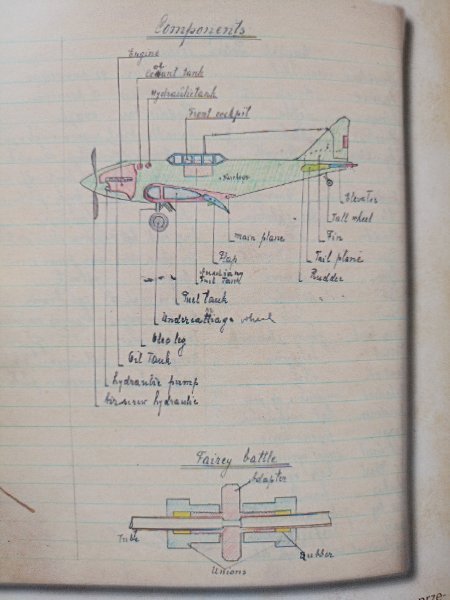 Components
Engine
Coolant tank
Hydraulic tank
Front cockpit
Elevator
Tail wheel
main plane
Fin
Flap
Tail plane
Fuel Tank
Rudder
Fuel tank
Undercarriage wheel
Oleo leg
Oil Tank
hydraulic pump
Airscrew hydraulic
Fairey battle
Adapter
Tube
Rubber
Unions
prze-